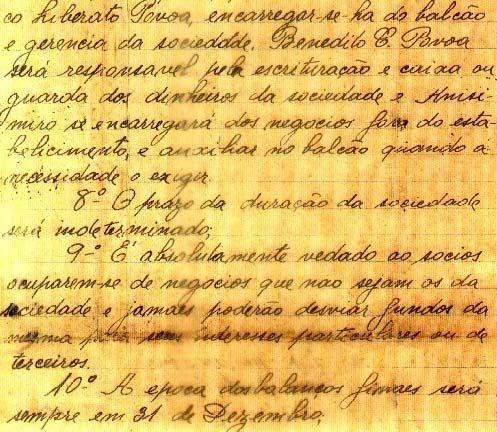 co Liberato Povoa, encarregar-se-ha do balcão
e gerencia da sociedade. Benedito E. Povoa
será responsavel pela escrituração e caixa ou
guarda dos dinheiros da sociedade e Anisi-
miro se encarregará dos negocios fora do esta-
belicimento, e auxiliar no balcão quando a
necessidade o exigir.
8-º O prazo da duração da sociedade
será indeterminado;
9-º É absolutamente vedado ao socios
ocuparem-se de negocios que nao sejam os da
sociedade e jamaes poderão desviar fundos da
mesma para seus interesses particulares ou de
terceiros.
10º A epoca dos balanços finaes será
sempre em 31 de Dezembro;